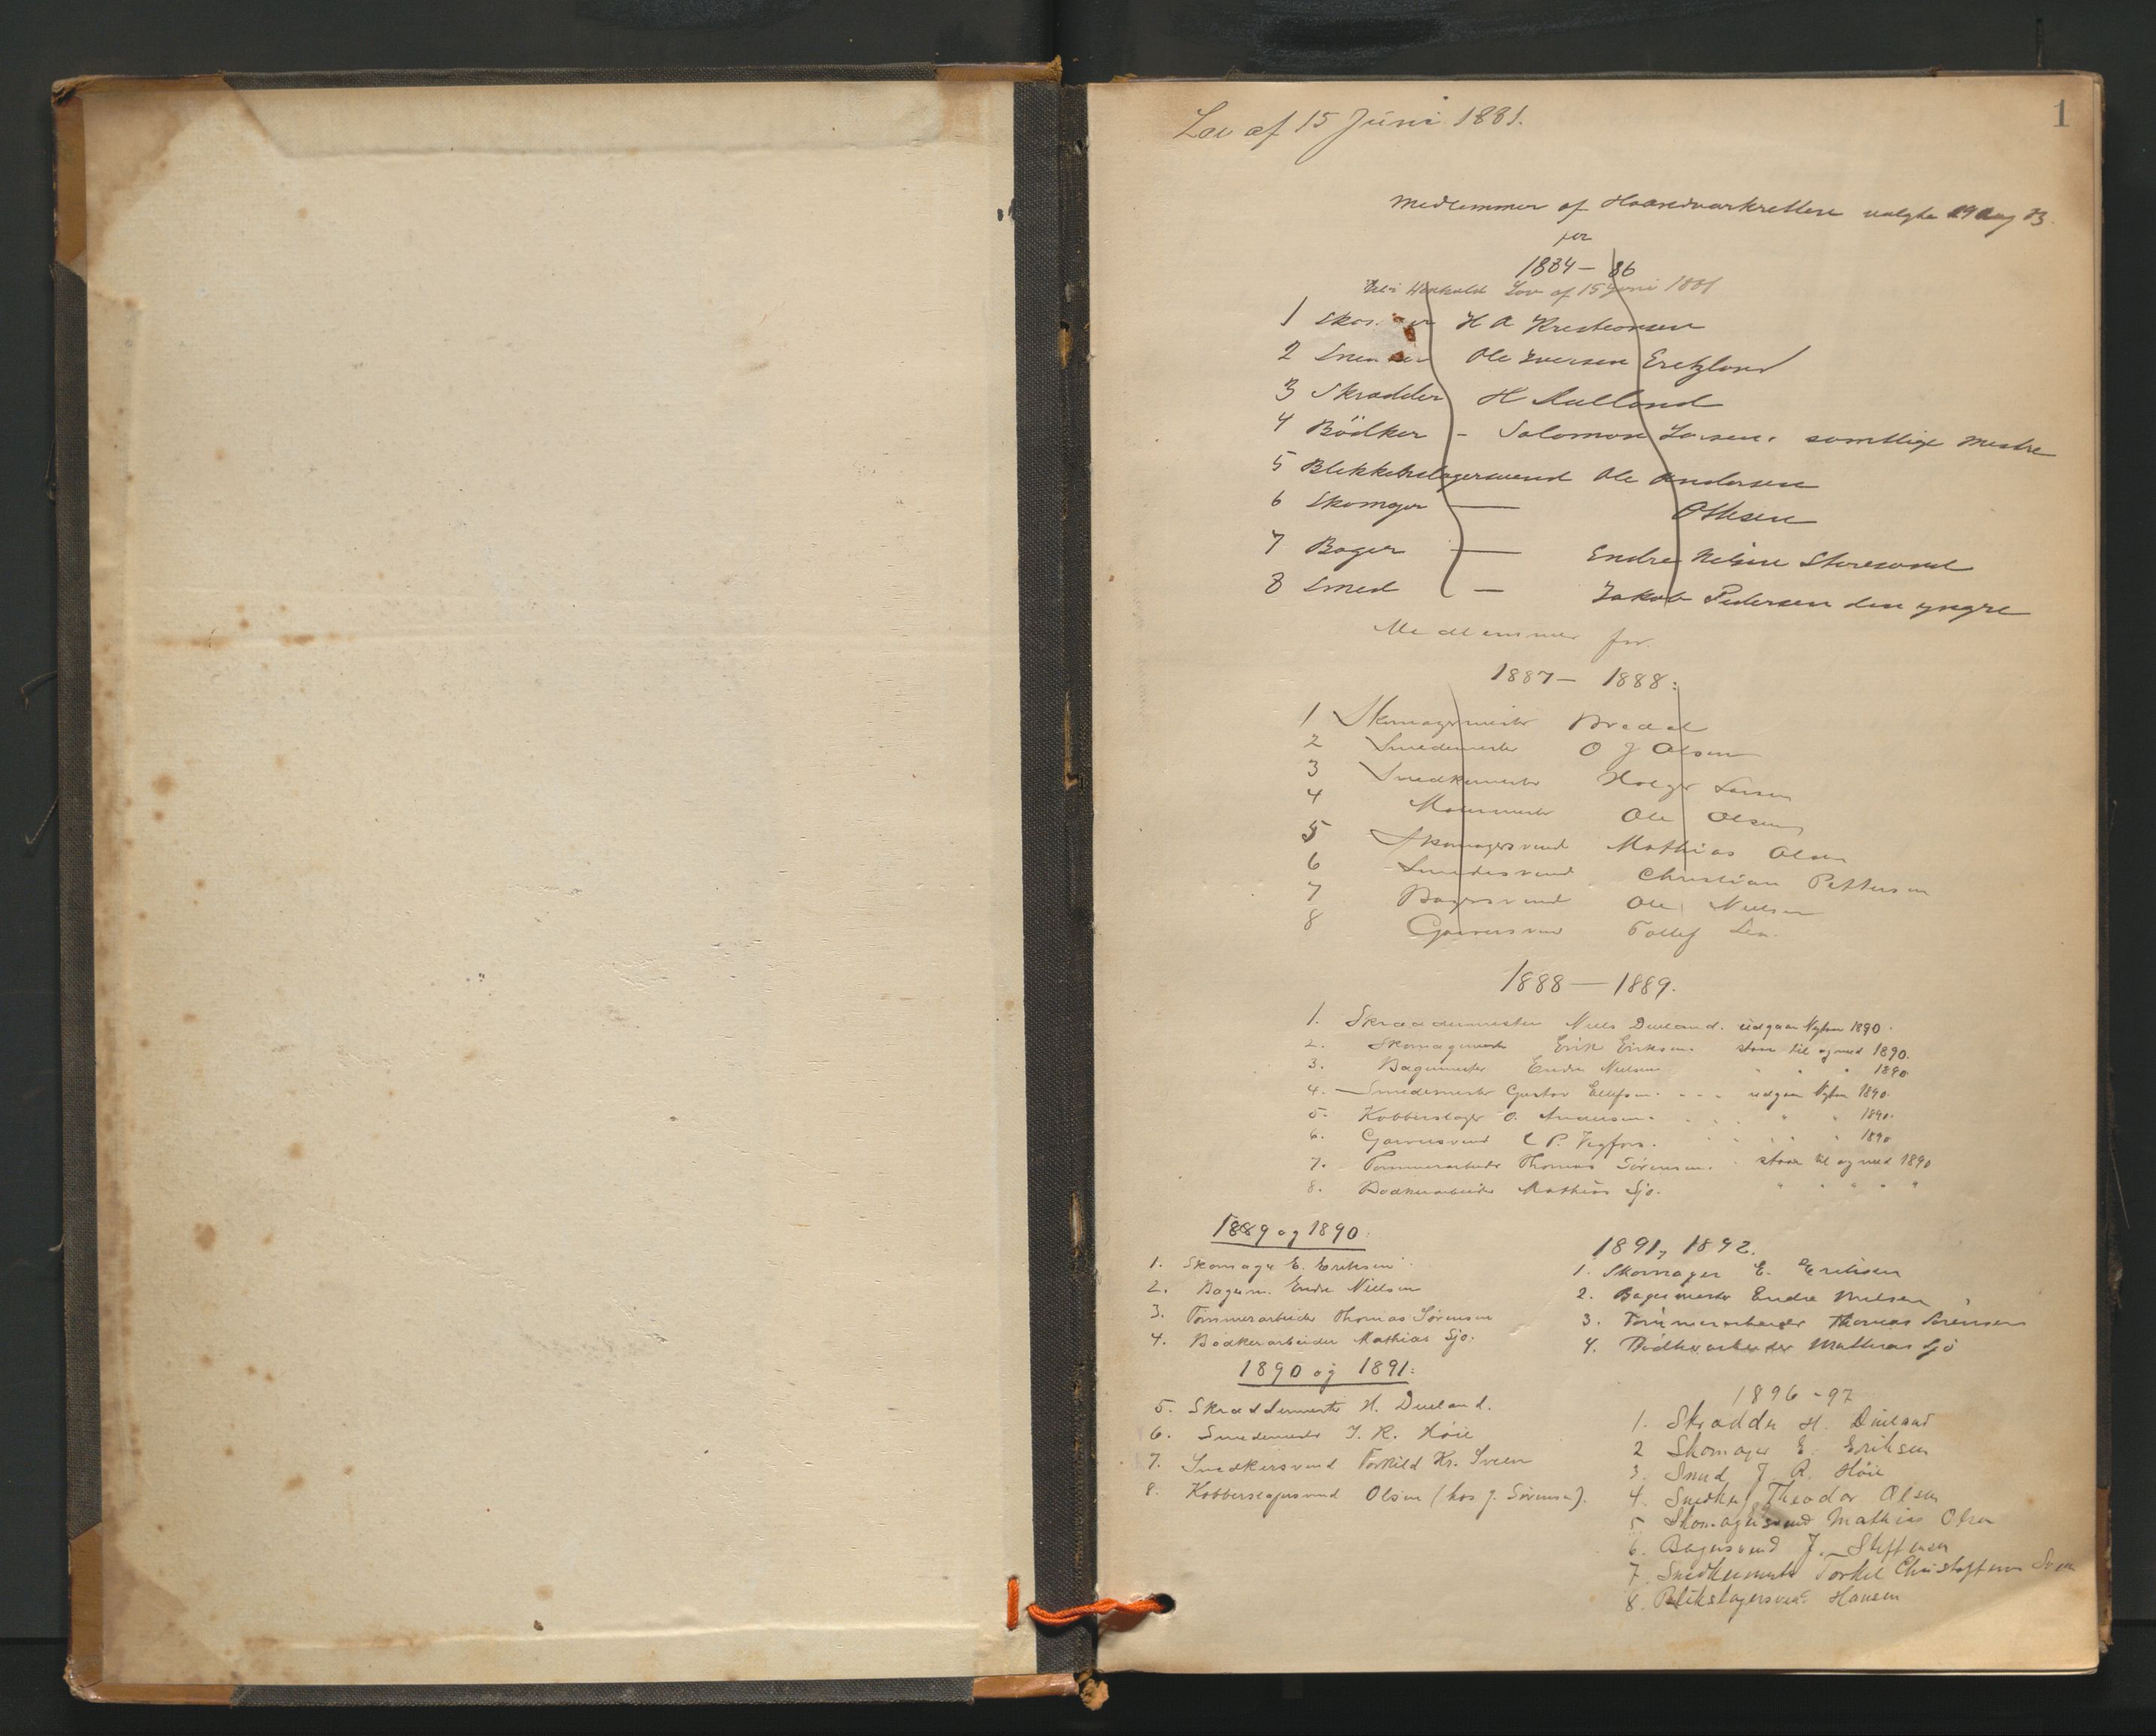 1
Lov af 15 Juni 1881.
Medlemmer af Haandværkretten valgte 29 Aug 83.
for
1884 – 86
Henhold Lov af 15 Juni 1881
1 H A Kristensen
2 Ole Iversen
3 Skrædder H
4 Bödker – Salomon Larsen. samtlige Mestre
5 Blikkenslagersvend Ole Andersen
6 Skomager — Ottesen
7 Bager — Endre Nelsen
8 Smed — Jakob Pedersen den yngre
Medlemmer for
1887 – 1888:
1 Skomagermester
2 Smedemester O J Olsen
3 Snedkermester Holger Larsen
4 Malermester Ole Olsen
5 Skomagersvend Mathias Olsen
6 Smedesvend Christian Pettersen
7 Bagersvend Ole Nielsen
8 Garversvend Tollef
1888 — 1889.
1. Skræddermester Niels Dueland. udgaar Nytaar 1890.
2. Skomagermester Erik Eriksen staar til og med 1890.
3. Bagermester Endre Nielsen " " " 1890
4. Smedemester Gustav Ellefsen. - - - udgaar Nytaar 1890.
5. Kobberslager O. Andersen. " " 1890.
6. Garversvend P. " " 1890
7. Tømmerarbeider Thomas Sørensen. staar til og med 1890
8. Bødkerarbeider Mathias Sjo. " " " " "
1889 og 1890.
1. Skomager E. Eriksen
2. Bagerm. Endre Nielsen
3. Tømmerarbeider Thomas Sørensen
4. Bødkerarbeider Mathias Sjo.
1890 og 1891:
5. Skræddermester H. Dueland.
6. Smedemester J. R. Høie
7. Snedkersvend Torkild Kr. Sveen
8. Kobberslagersvend Olsen (hos J. Sørensen).
1891, 1892.
1. Skomager E. Eriksen
2. Bagermester Endre Nielsen
3. Tømmerarbeider Thomas Sørensen
4. Bødkerarbeider Mathias Sjo
1896 - 97
1. Skrædder H. Dueland
2 Skomager E. Eriksen
3. Smed J. R. Høie
4. Snedker Theodor Olsen
5 Skomagersvend Mathias Olsen
6. Bagersvend J. Steffensen
7. Snedkermester Torkel Christoffersen
8. Blikslagersvend Hansen